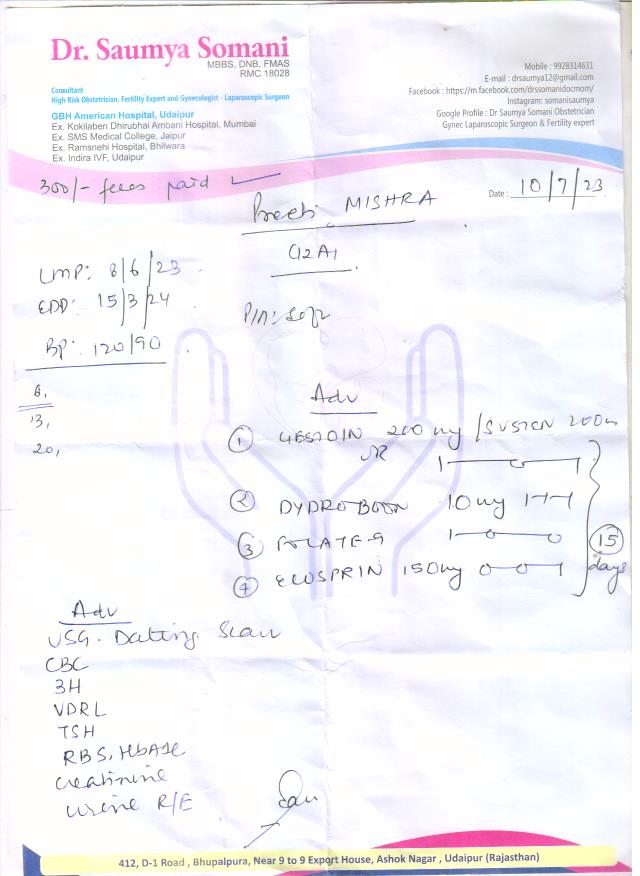 Dr. Saumya Somani
MBBS, DNB, FMAS
RMC 18028
Consultant
High Risk Obstetrician, Fertility Expert and Gynecologist - Laparoscopic Surgeon
GBH American Hospital, Udaipur
Ex. Kokilaben Dhirubhai Ambani Hospital, Mumbai
Ex. SMS Medical College, Jaipur
Ex. Ramsnehi Hospital, Bhilwara
Ex. Indira IVF, Udaipur
Mobile : 9928314631
E-mail : drsaumya12@gmail.com
Facebook : https://m.facebook.com/drssomanidocmom/
Instagram: somanisaumya
Google Profile : Dr Saumya Somani Obstetrician
Gynec Laparoscopic Surgeon & Fertility expert
300/- fees paid
Date : 10/7/23
Preeti MISHRA
G2A1
LMP: 8/6/23
EDD: 15/3/24
BP: 120/90
P/A: soft
8,
13,
20,
Adv
1 GESTOIN 200 mg / SUSTEN 200
SR 1-0-1
2 DYDROBOON 10 mg 1-1-1
3 FOLATE-9 1-0-0
4 ECOSPRIN 150mg 0-0-1
15 days
Adv
USG. Dating Scan
CBC
3H
VDRL
TSH
RBS, HbA1c
Creatinine
Urine R/E
412, D-1 Road , Bhupalpura, Near 9 to 9 Export House, Ashok Nagar , Udaipur (Rajasthan)